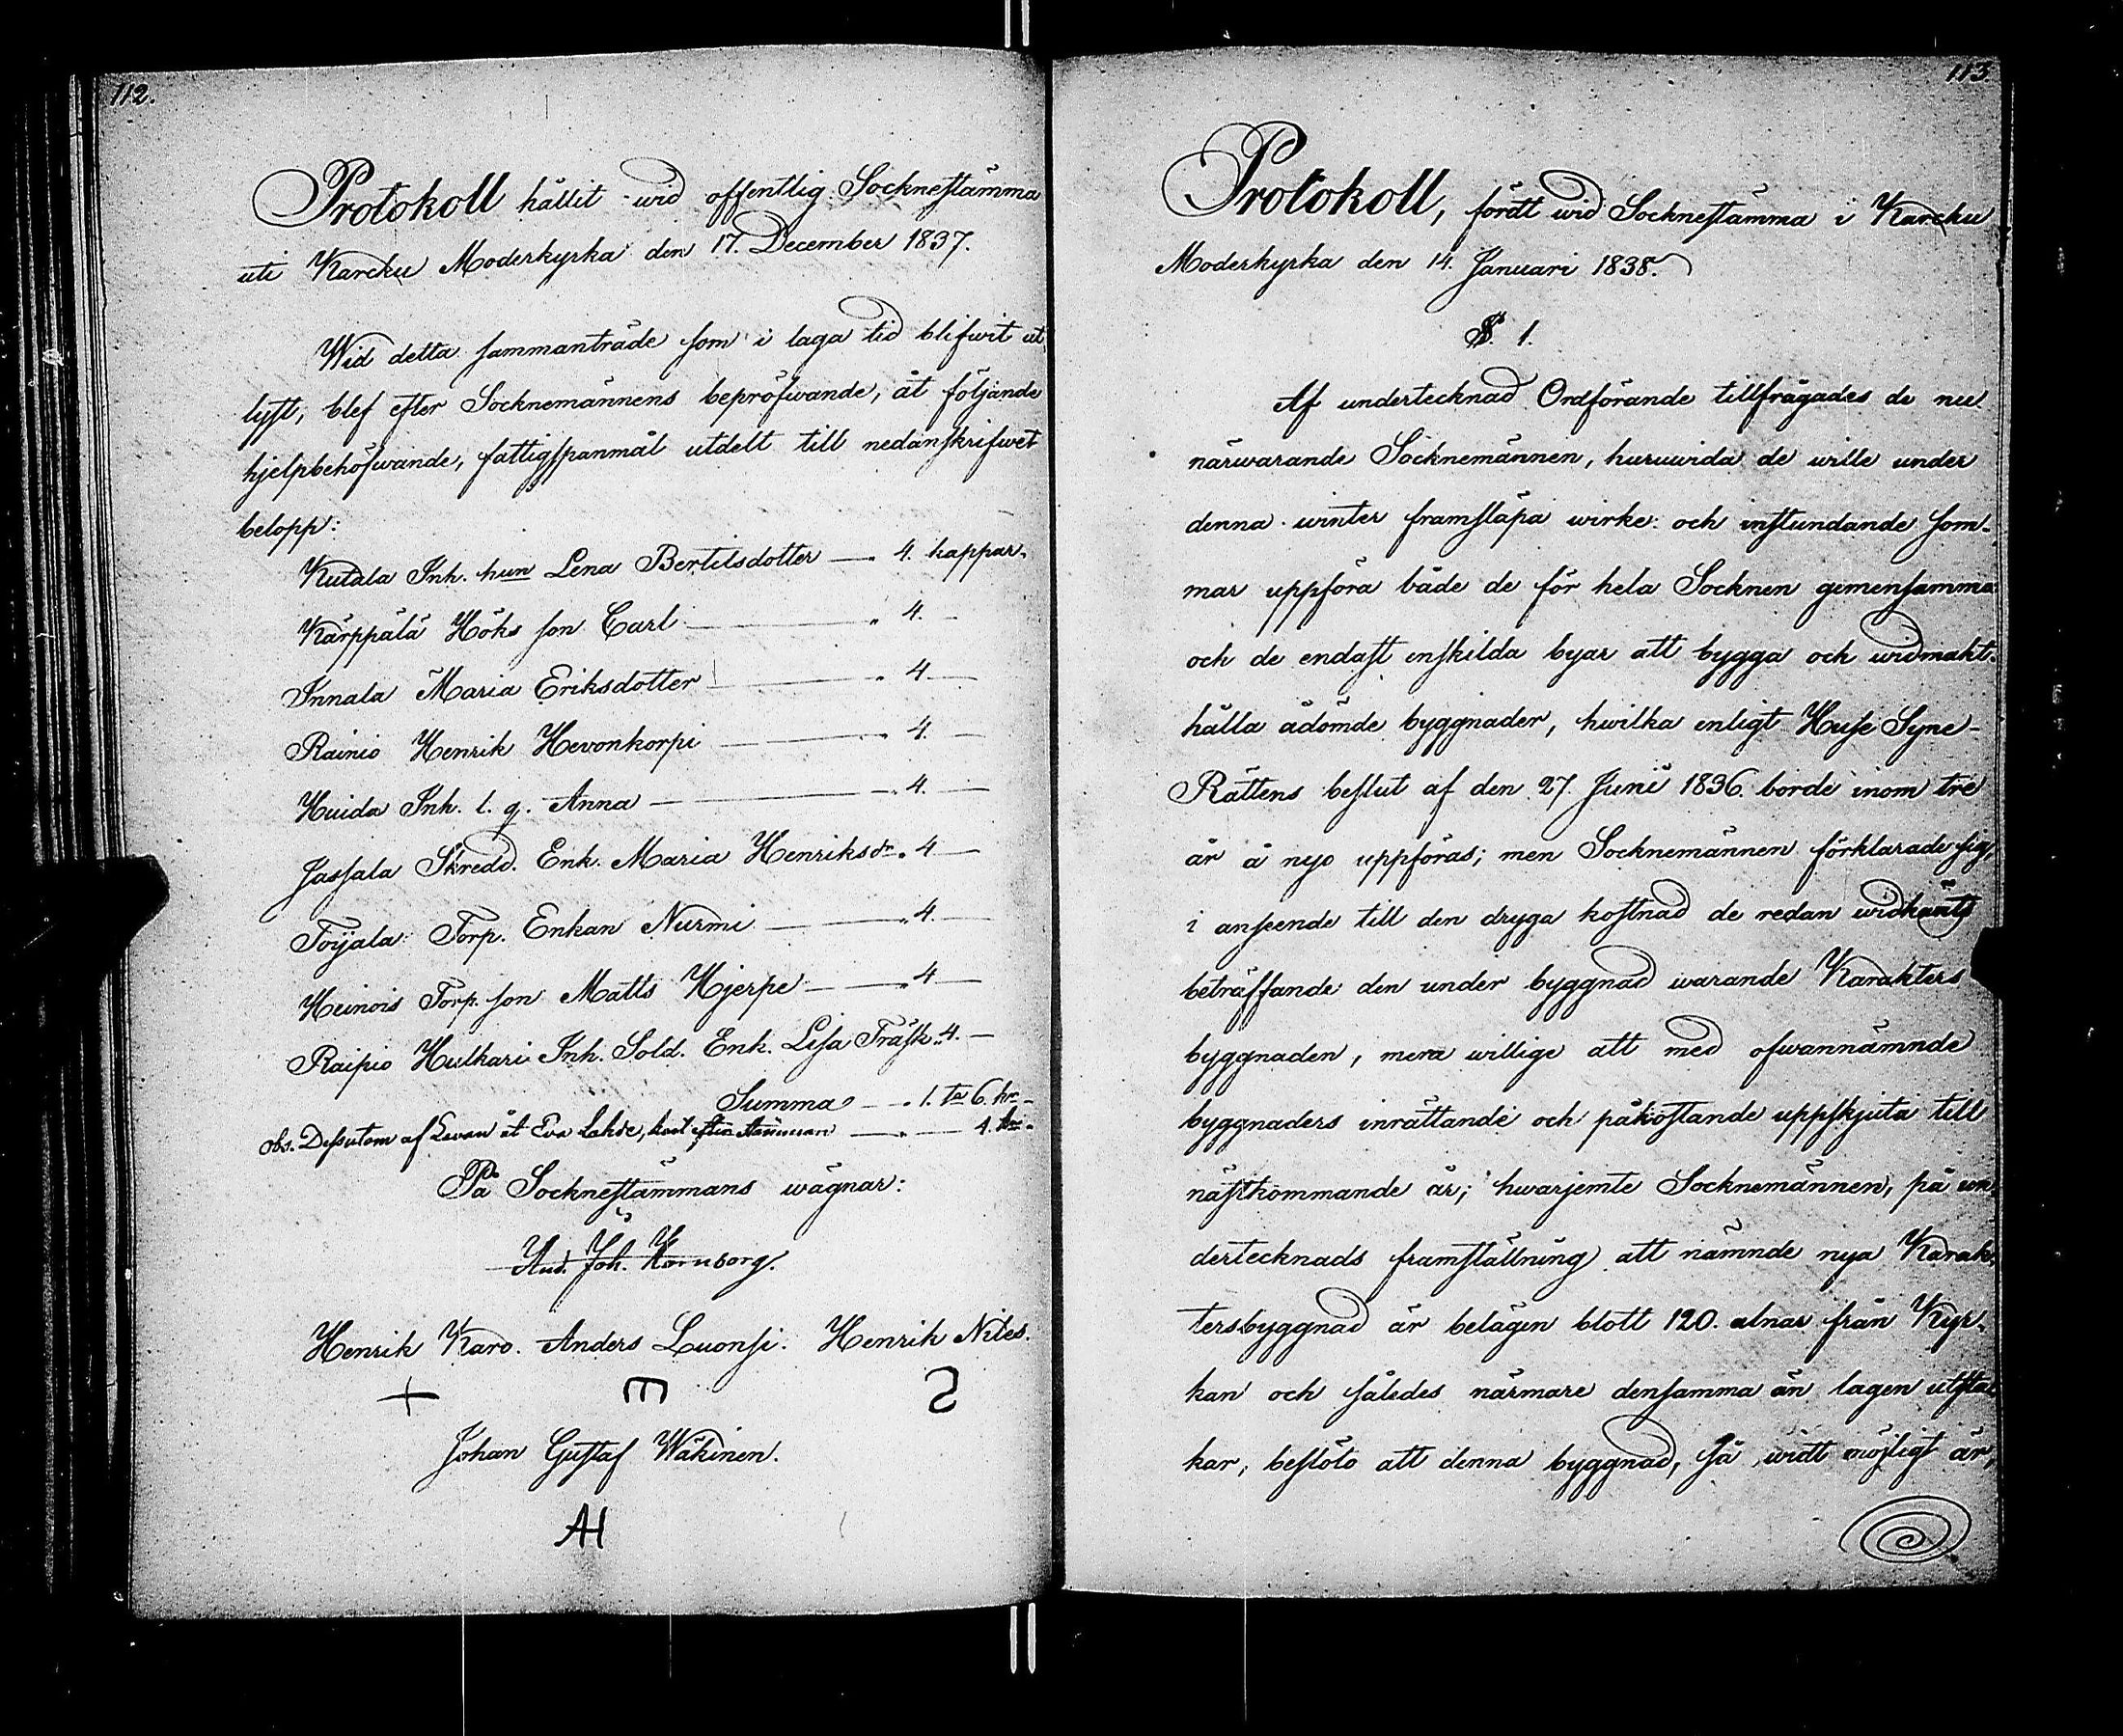 112.
Protokoll hållit wid offentlig Sockneſtämma
uti Karcku Moderkyrka den 17. December 1837.
Wid detta ſammanträde ſom i laga tid blifwit ut
lyſt, blef efter Socknemännens bepröfwande, åt följande
hjelpbehöfwande, fattigſpanmål utdelt till nedanſkrifwet
belopp:
Kutala Inh. hun Lena Bertilsdotter — 4. kappar.
Kärppälä Höks ſon Carl — " 4. —
Innala Maria Eriksdotter — " 4. —
Rainio Henrik Hevonkorpi — " 4. —
Huida Inh. l. g. Anna — " 4. —
Jasſala Skredd. Enk. Maria Henriksdr " 4 —
Toijala Torp. Enkan Nurmi — " 4. —
Heinois Torp. ſon Matts Hjerpe — " 4 —
Raipio Hulkari Inh. Sold. Enk. Liſa Träſk " 4. —
Summa — 1. ta 6. kr —
obs. Desſutom af Lewan åt Eva Lahde, — 4. kr.
På Sockneſtämmans wägnar:
And. Joh. Hornborg.
Henrik Karo. Anders Luonſi. Henrik Niles.
Johan Guſtaf Wäkinen.
AH
113
Protokoll, fördt wid Sockneſtämma i Karcku
Moderkyrka den 14. Januari 1838.
§. 1.
Af undertecknad Ordförande tillfrågades de nu
närwarande Socknemännen, huruwida de wille under
denna winter framſläpa wirke och inſtundande ſom-
mar uppföra både de för hela Socknen gemenſamma
och de endaſt enſkilda byar att bygga och widmakt-
hålla ådömde byggnader, hwilka enligt Huſe Syne-
Rättens beſlut af den 27. Juni 1836. borde inom tre
år å nyo uppföras; men Socknemännen förklarade ſig,
i anſeende till den dryga koſtnad de redan widkänts
beträffande den under byggnad warande Karakters
byggnaden, mera willige att med ofwannämnde
byggnaders inrättande och påkoſtande uppſkjuta till
näſtkommande år; hwarjemte Socknemännen, på un-
dertecknads framſtällning att nämnde nya Karak-
tersbyggnad är belägen blott 120. alnar från Kyr-
kan och ſåledes närmare denſamma än lagen utſta-
kar, beſlöto att denna byggnad, ſå widt möjligt är,